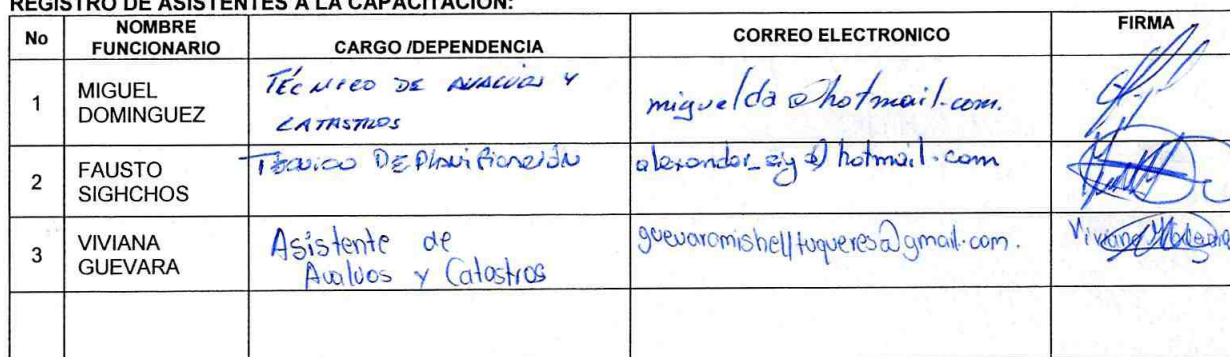 REGISTRO DE ASISTENTES A LA CAPACITACIÓN:
No
NOMBRE
FUNCIONARIO
CARGO /DEPENDENCIA
CORREO ELECTRONICO
FIRMA
1
MIGUEL
DOMINGUEZ
TÉCNICO DE AVALUOS Y
CATASTROS
miguelda@hotmail.com.
2
FAUSTO
SIGHCHOS
TECNICO DE Planificación
alexander_sig@hotmail.com
3
VIVIANA
GUEVARA
Asistente de
Avaluos y Catastros
guevaramishelltuqueres@gmail.com.
Viviana